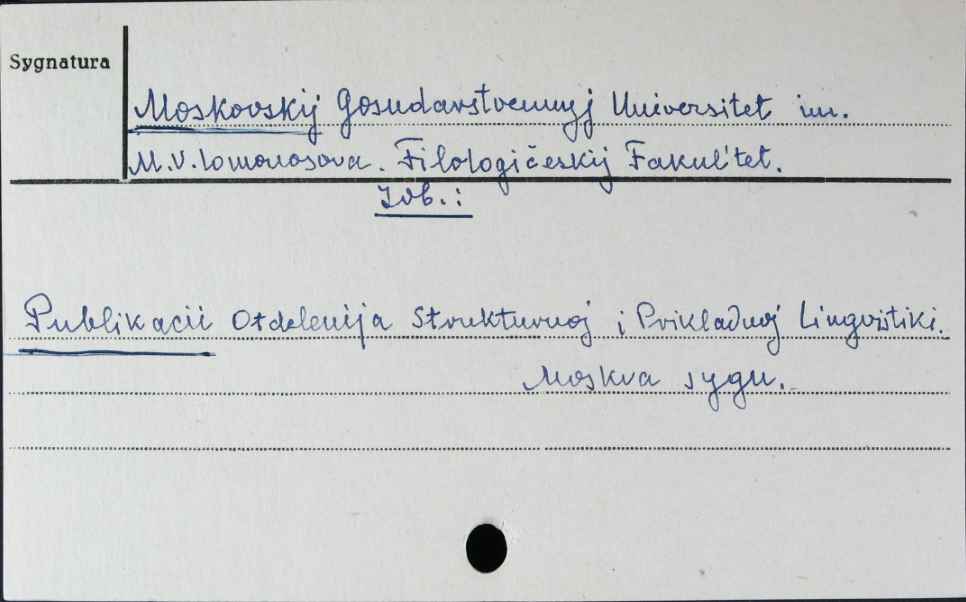 Sygnatura
Moskovskij Gosudarstvennyj Universitet im.
M.V. Lomonosova. Filologičeskij Fakul'tet.
Zob.:
Publikacii Otdelenija Strukturnoj i Prikladnoj Lingvistiki.
Moskva sygn.